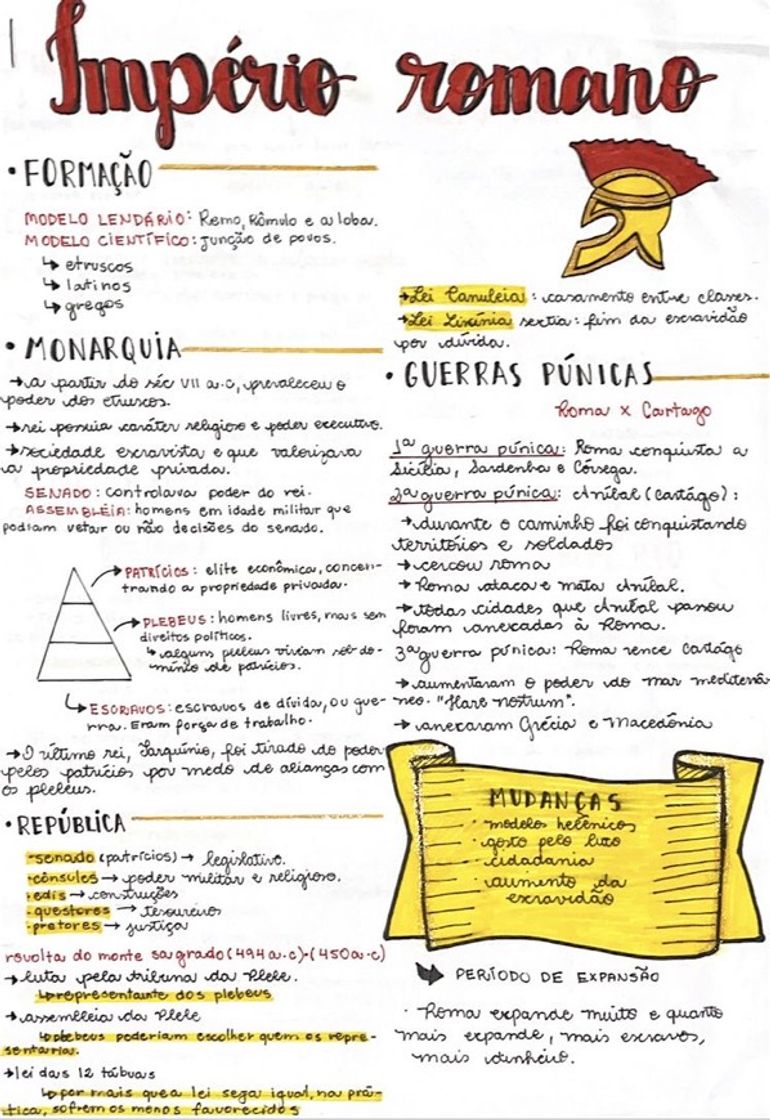 Império romano
• FORMAÇÃO
MODELO LENDÁRIO: Remo, Rômulo e a loba.
MODELO CIENTÍFICO: junção de povos.
↳ etruscos
↳ latinos
↳ gregos
• MONARQUIA
→ a partir do séc VII a.c, prevaleceu o
poder dos etruscos.
→ rei possuia caráter religioso e poder executivo.
→ sociedade escravista e que valorizava
a propriedade privada.
SENADO: controlava poder do rei.
ASSEMBLÉIA: homens em idade militar que
podiam vetar ou não decisões do senado.
PATRÍCIOS: elite econômica, concen-
trando a propriedade privada.
PLEBEUS: homens livres, mas sem
direitos políticos.
↳ alguns plebeus viviam sob do-
mínio de patrícios.
ESCRAVOS: escravos de dívida, ou gue-
rra. Eram força de trabalho.
→ O último rei, Tarquínio, foi tirado do poder
pelos patrícios por medo de alianças com
os plebeus.
• REPÚBLICA
• senado (patrícios) → legislativo.
• cônsules → poder militar e religioso.
• edis → construções
• questores → tesoureiros
• pretores → justiça
revolta do monte sagrado (494 a.c)-(450 a.c)
→ luta pela tribuna da Plebe.
↳ representante dos plebeus
→ assembleia da Plebe
↳ plebeus poderiam escolher quem os repre-
sentaria.
→ lei das 12 tábuas
↳ por mais que a lei seja igual, na prá-
tica, sofrem os menos favorecidos
→ Lei Canuleia: casamento entre classes.
→ Lei Licínia sextia: fim da escravidão
por dívida.
• GUERRAS PÚNICAS
Roma x Cartago
1ª guerra púnica: Roma conquista a
Sicília, Sardenha e Córsega.
2ª guerra púnica: Aníbal (Cartágo):
→ durante o caminho foi conquistando
territórios e soldados
→ cercou roma
→ Roma ataca e mata Aníbal.
→ todas cidades que Aníbal passou
foram anexadas à Roma.
3ª guerra púnica: Roma vence Cartágo
→ aumentaram o poder do mar mediterrâ-
neo. "Mare nostrum".
→ anexaram Grécia e Macedônia
MUDANÇAS
• modelos helênicos
• gosto pelo luxo
• cidadania
• aumento da
escravidão
PERÍODO DE EXPANSÃO
• Roma expande muito e quanto
mais expande, mais escravos,
mais dinheiro.